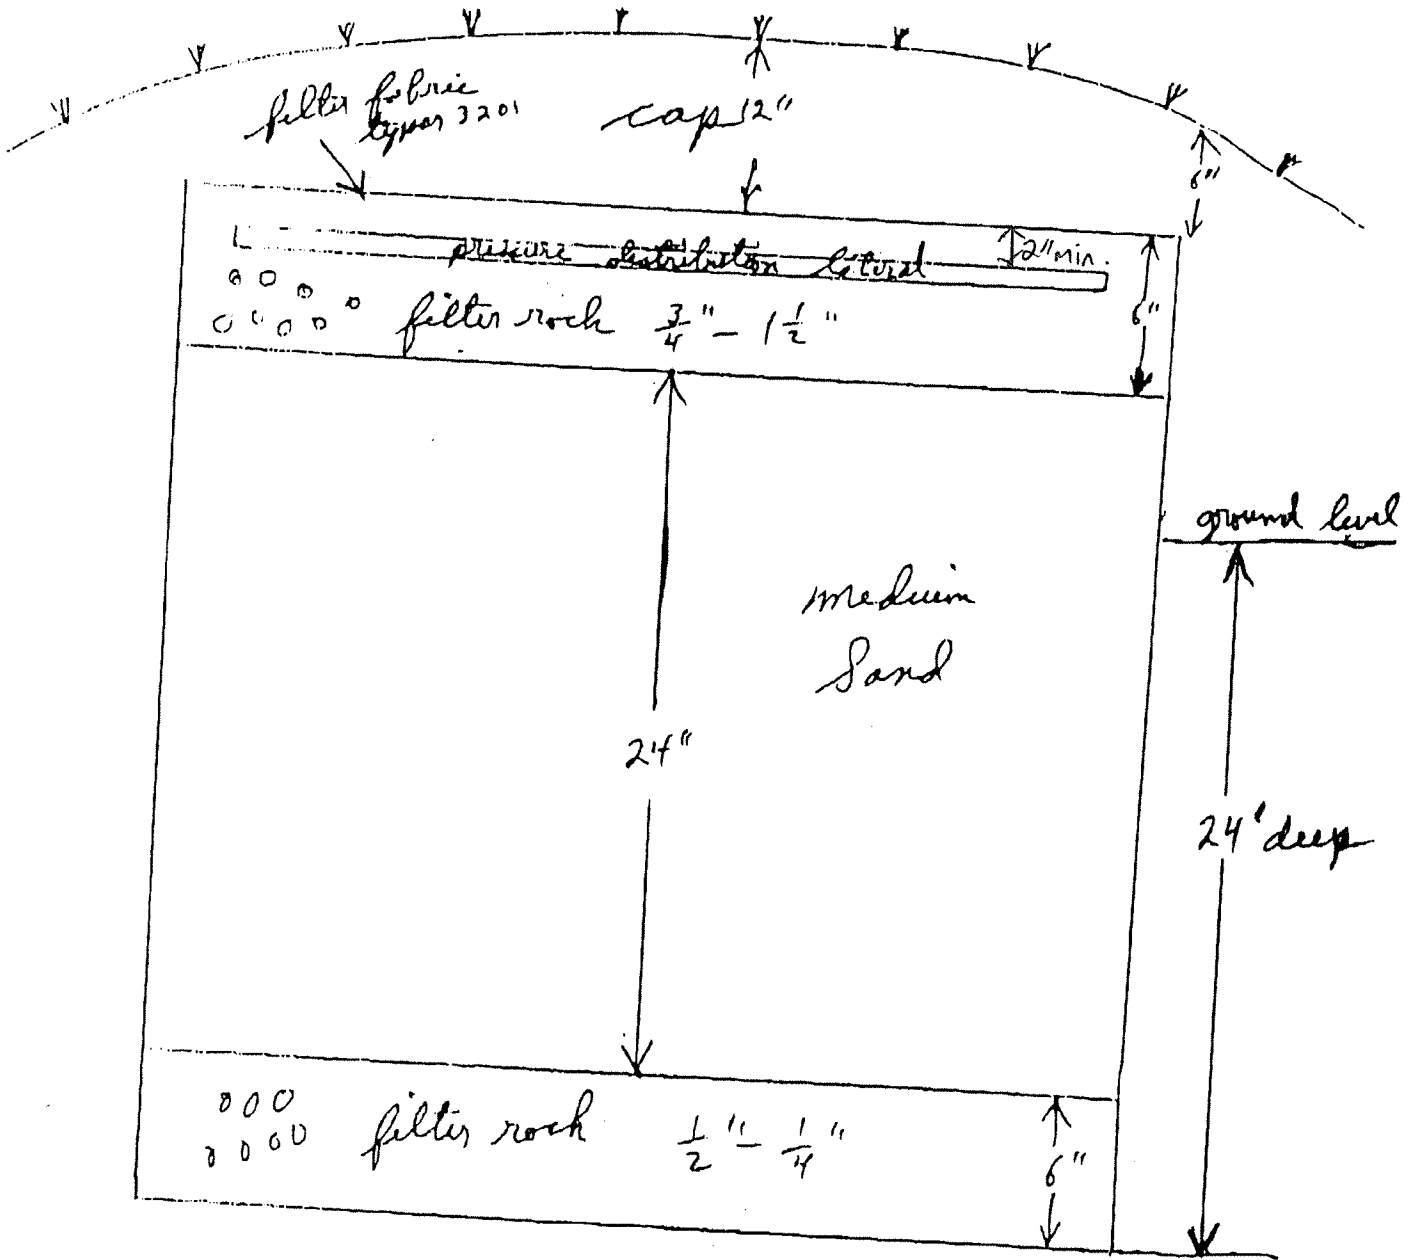 filter fabric
typar 3201
cap 12"
6"
pressure distribution lateral
2" min.
filter rock 3/4" - 1 1/2"
6"
ground level
medium
Sand
24"
24' deep
filter rock 1/2" - 1/4"
6"